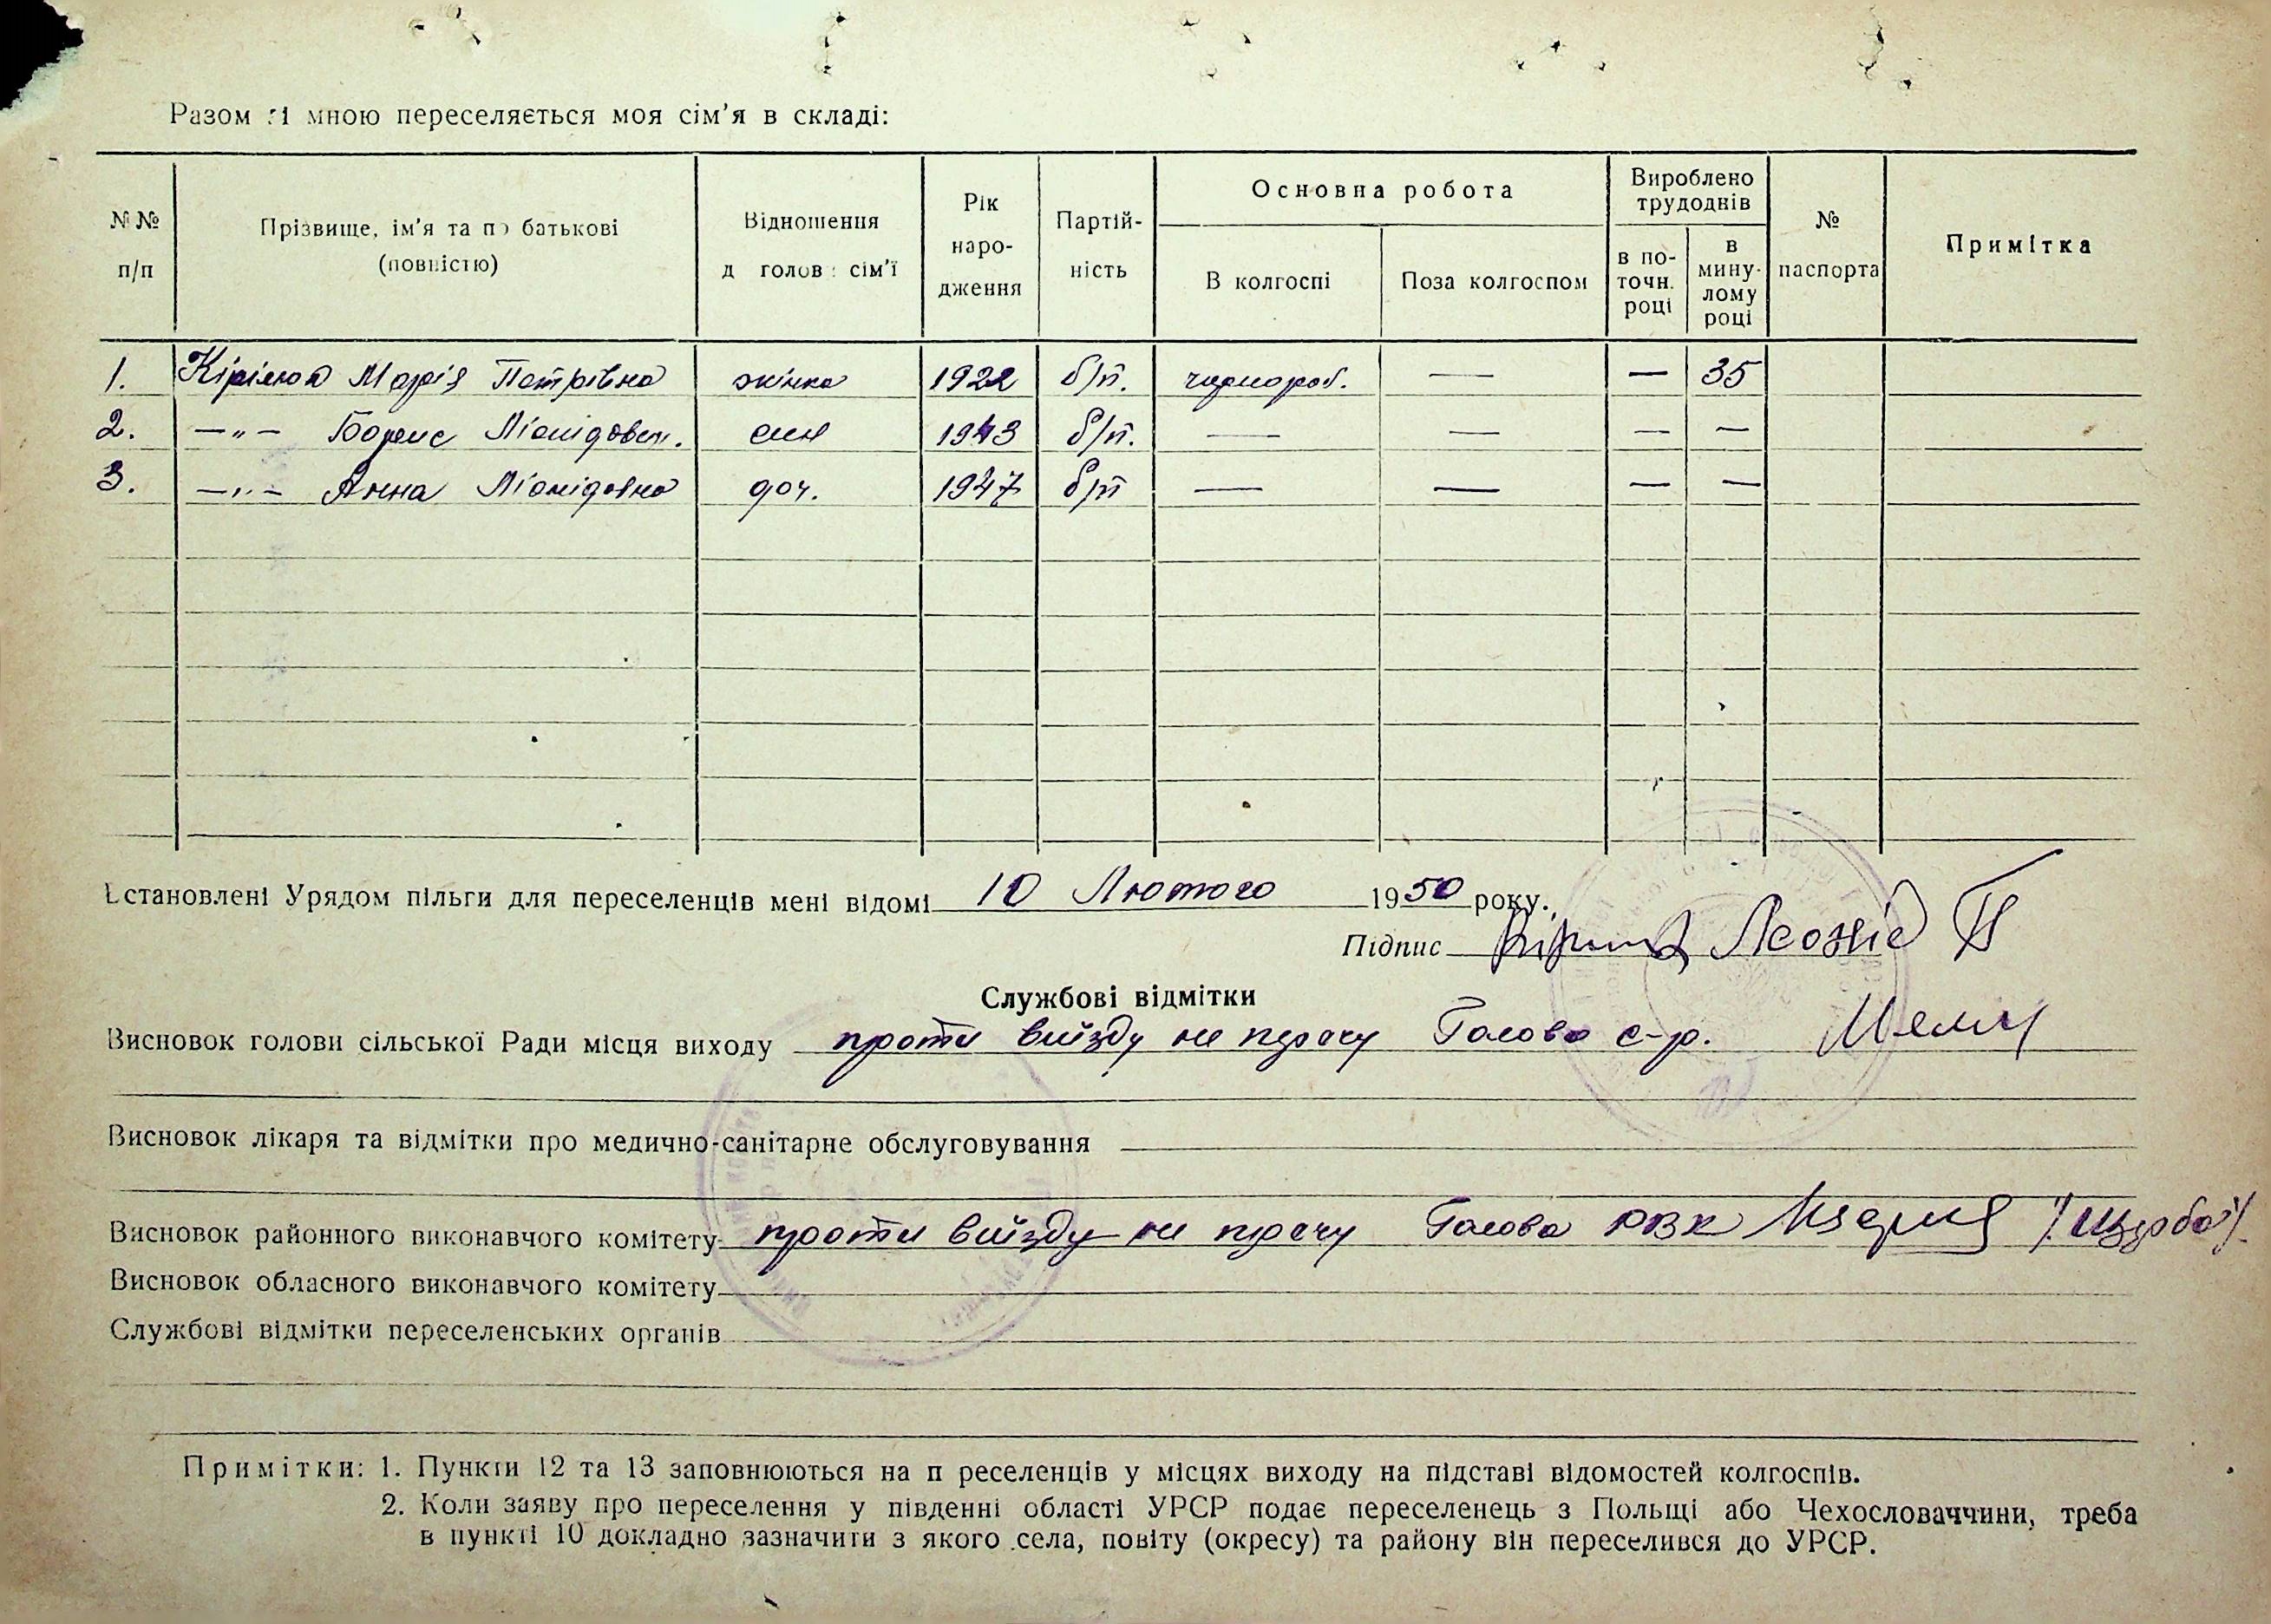 Разом зі мною переселяється моя сім'я в складі:
№№ п/п
Прізвище, ім'я та по батькові (повністю)
Відношення д голов сім'ї
Рік наро-дження
Партій-ність
Основна робота
В колгоспі
Поза колгоспом
Вироблено трудоднів
в по-точн. році
в мину-лому році
№ паспорта
Примітка
1. Марія Петрівна жінка 1922 б/п. чорнороб. — — 35
2. —„— Борис Ліонідович. син 1943 б/п. — — — —
3. —„— Анна Ліонідовна доч. 1947 б/п — — — —
Встановлені Урядом пільги для переселенців мені відомі 10 Лютого 1950 року.
Підпис Леонід П
Службові відмітки
Висновок голови сільської Ради місця виходу проти виїзду не перечу Голова с-р.
Висновок лікаря та відмітки про медично-санітарне обслуговування
Висновок районного виконавчого комітету проти виїзду не перечу Голова РВК
Висновок обласного виконавчого комітету
Службові відмітки переселенських органів
Примітки: 1. Пункти 12 та 13 заповнюються на п реселенців у місцях виходу на підставі відомостей колгоспів.
2. Коли заяву про переселення у південні області УРСР подає переселенець з Польщі або Чехословаччини, треба
в пункті 10 докладно зазначити з якого села, повіту (окресу) та району він переселився до УРСР.